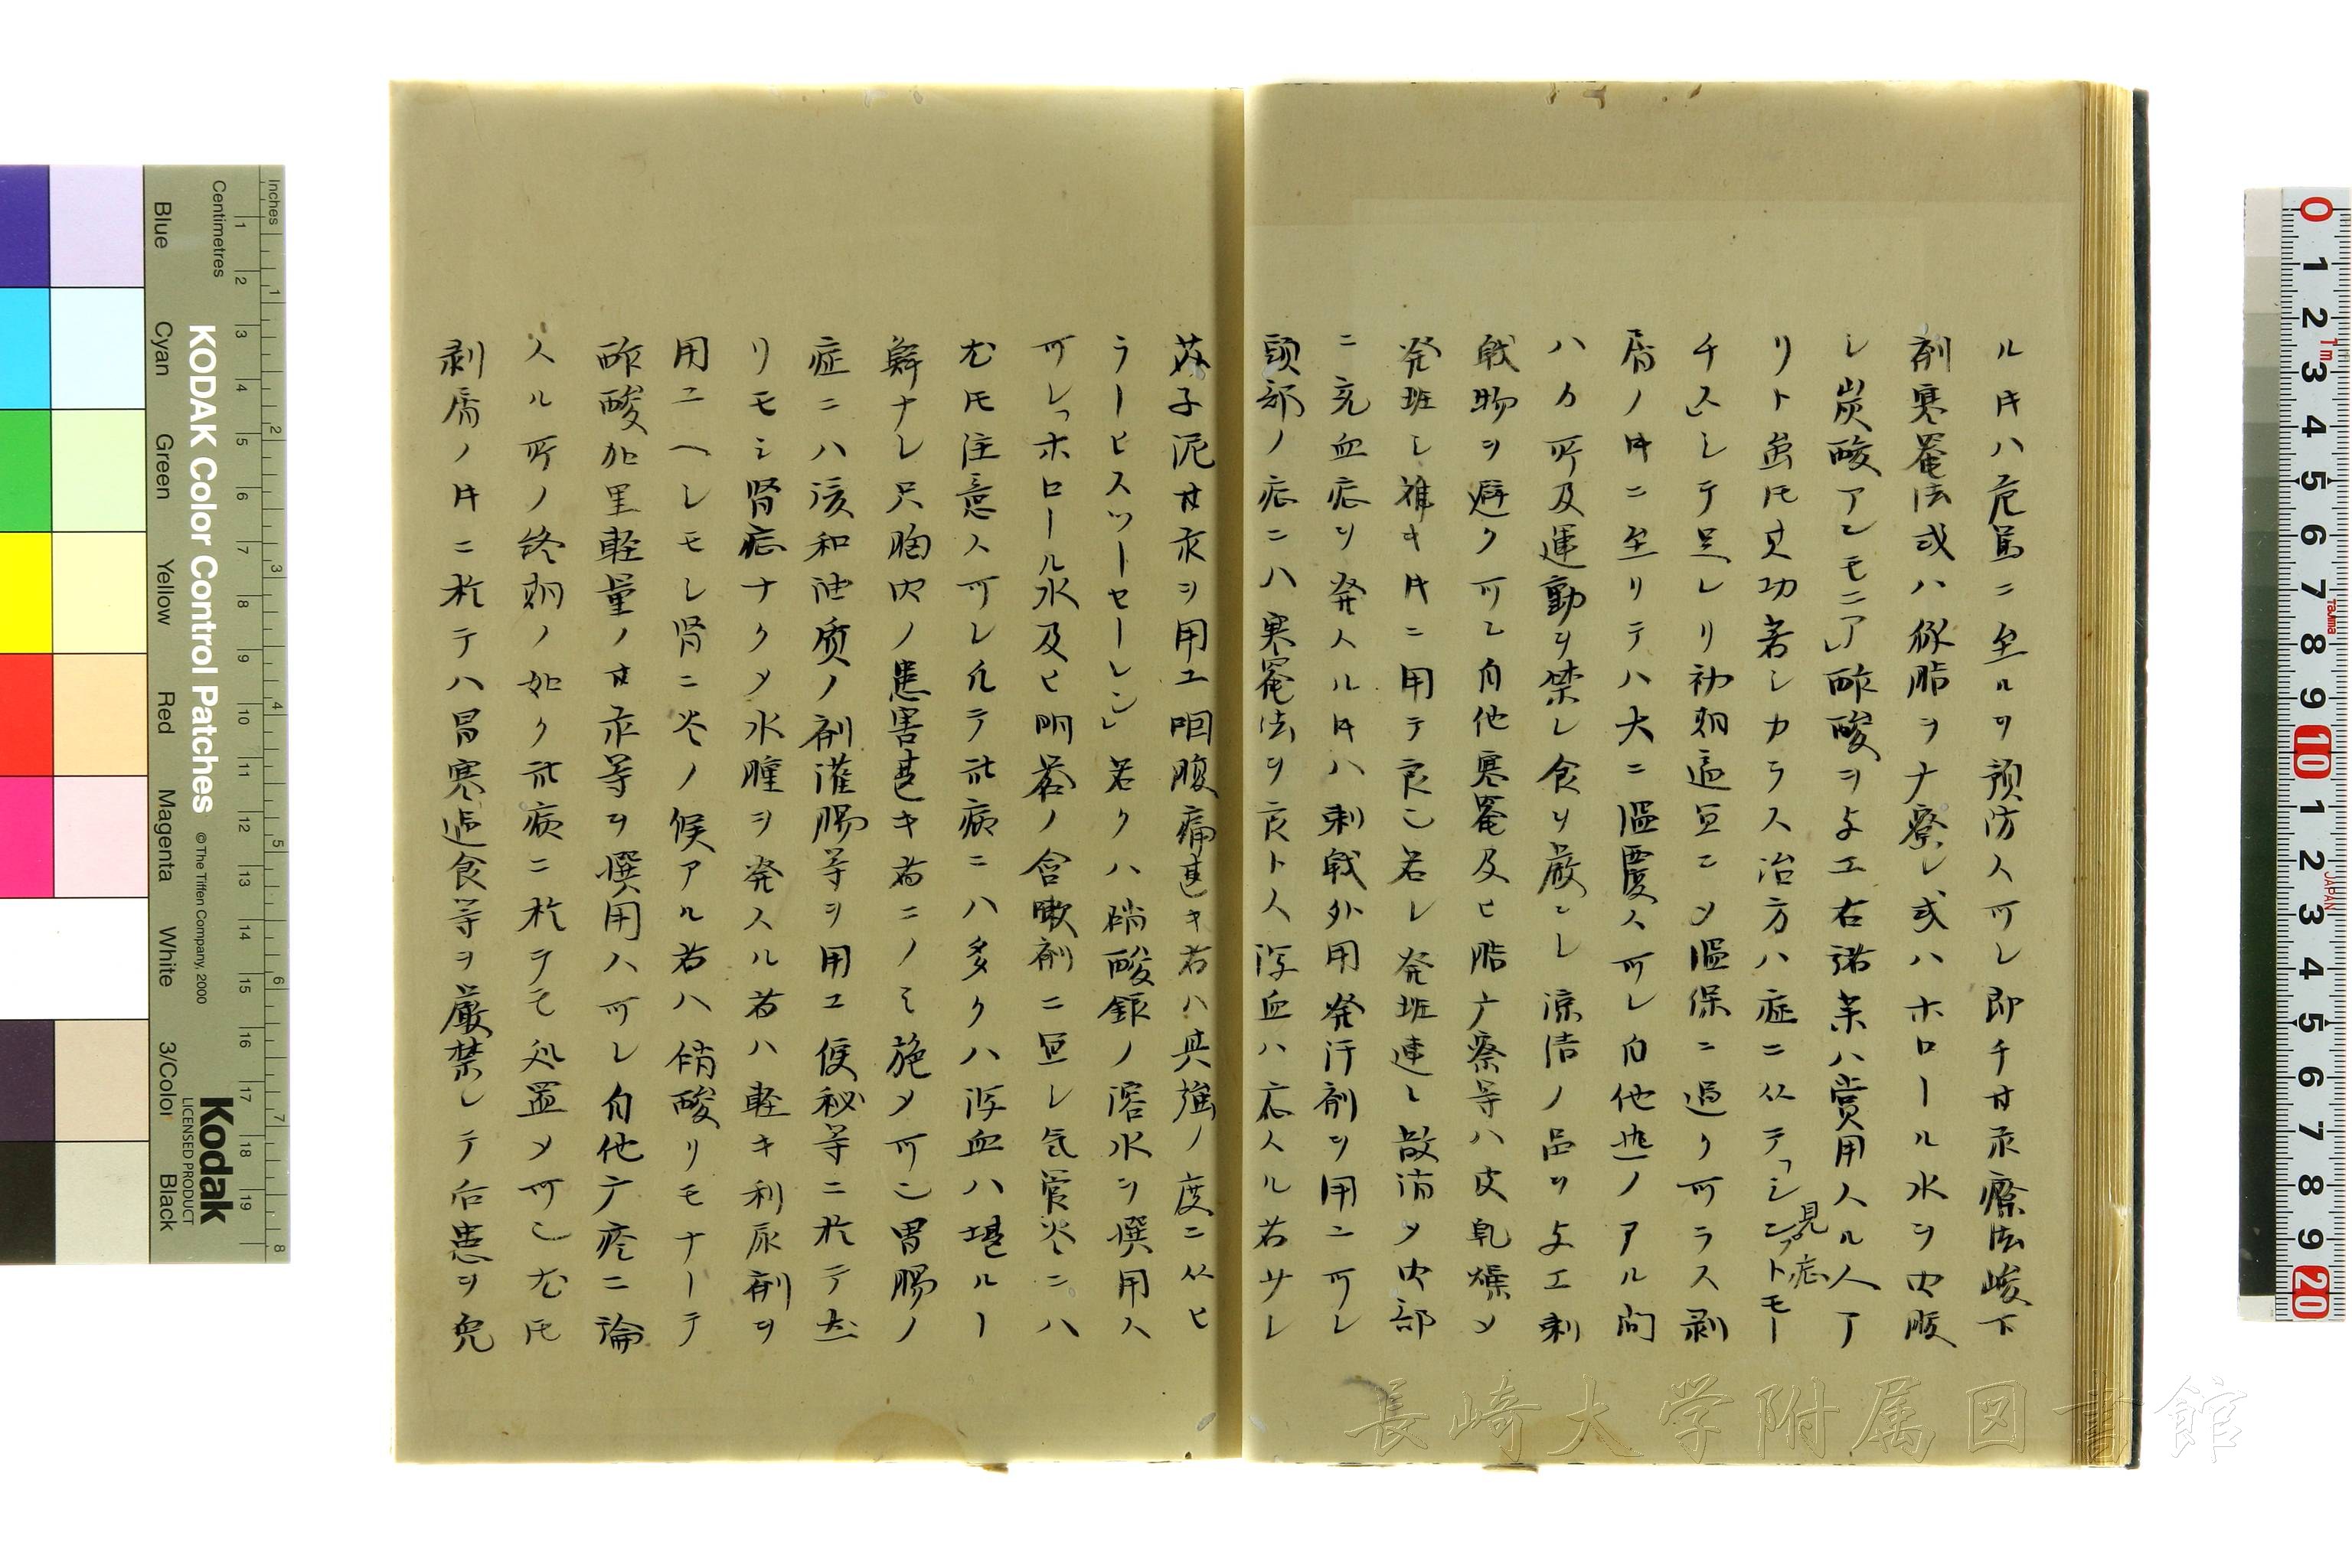 ルキハ危篤ニ至ルヲ預防スベレ即チ甘汞療法峻下
剤寒罨法或ハ豚脂ヲナ擦レ或ハホロール水ヲ内服
シ炭酸アンモニア」酢酸ヲ与エ右諸薬ハ賞用スル人ア
リト虽𪜈丈功著シカラス治方ハ症ニ从テ「シンプトモー
見症
チス」シテ足レリ初期適宜ニ〆温保ニ過ク可ラス剥
屑ノキニ至リテハ大ニ温覆ス可レ自他遮ノアル間
ハ力所及運動ヲ禁レ食ヲ厳ニレ涼清ノ品ヲ与エ刺
戟物ヲ避ク可シ自他寒罨及ヒ脂ナ擦等ハ皮乾燥〆
発斑シ難キキニ用テ良シ若レ発斑速ニ散消〆内部
ニ充血症ヲ発スルキハ刺戟外用発汗剤ヲ用ユ可レ
頭部ノ症ニハ寒罨法ヲ良トス瀉血ハ応スル者サレ
芥子泥甘汞ヲ用エ咽腹痛甚キ者ハ其強ノ度ニ从ヒ
ラーヒスツーセーレン」若クハ硝酸銀ノ溶水ヲ撰用ス
可レ「ホロール水及ヒ明礬ノ含嗽剤ニ宜レ気管炎ニハ
尤𪜈注意ス可レ凡テ此病ニハ多クハ瀉血ハ堪ルー
鮮ナレ只胸内ノ患害甚キ者ニノミ施〆可シ胃腸ノ
症ニハ緩和油質ノ剤灌腸等ヲ用エ便秘等ニ於テ玄
リモシ腎症ナク〆水腫ヲ発スル者ハ軽キ利尿剤ヲ
用ユヘレモレ腎ニ炎ノ候アル者ハ硝酸リモナーテ
酢酸加里軽量ノ甘汞等ヲ撰用ハ可レ自他ナ疹ニ論
スル所ノ終期ノ如ク此病ニ於テモ処置〆可シ尤𪜈
剥屑ノキニ於テハ冒寒過食等ヲ厳禁レテ后患ヲ免
Inches
Centimetres
Blue
Cyan
Green
Yellow
Red
Magenta
White
3/Color
Black
KODAK Color Control Patches
© The Tiffen Company, 2000
Kodak
LICENSED PRODUCT
長崎大学附属図書館